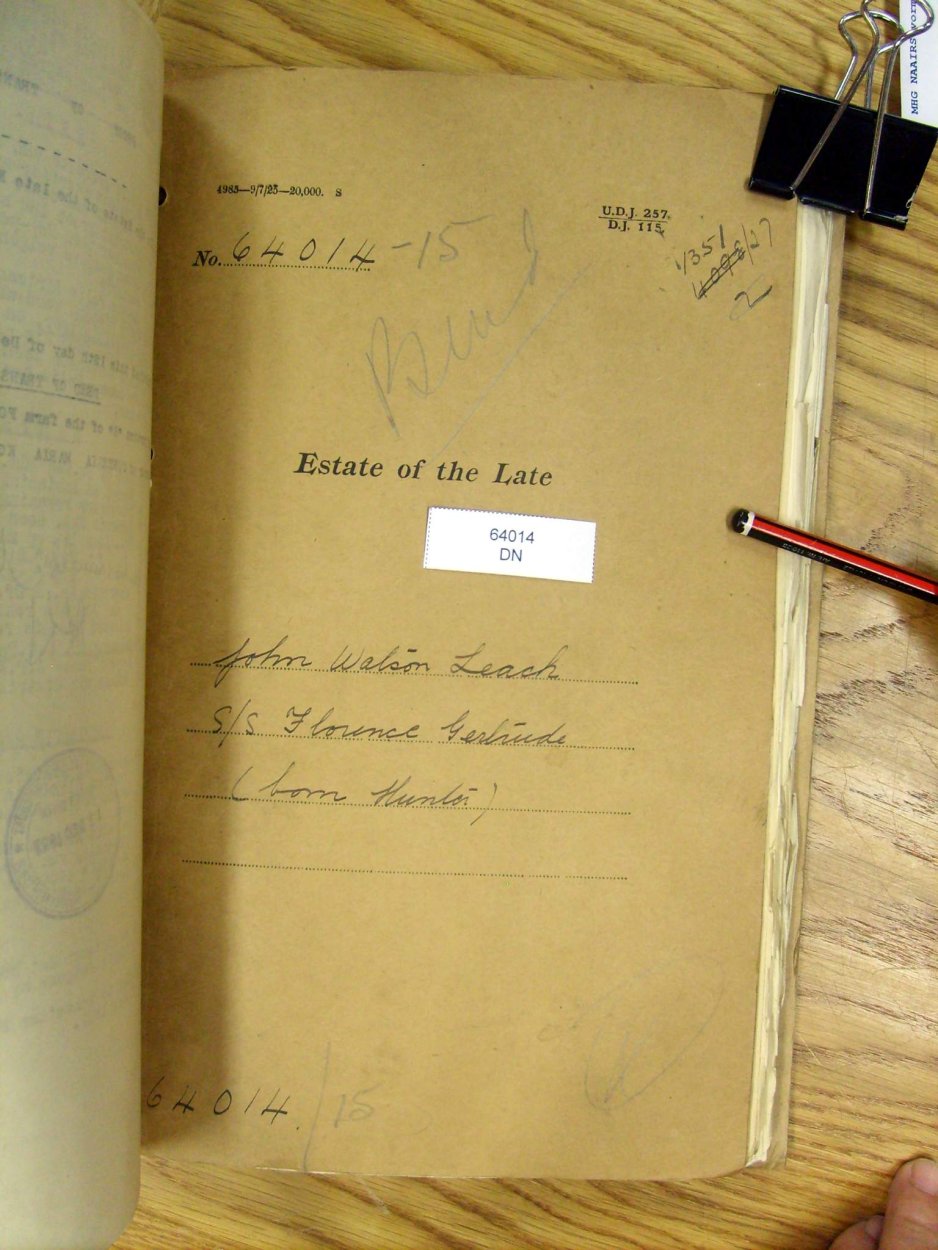 MHG NAAIRS
4985—9/7/25—20,000. S
U.D.J. 257.
D.J. 115.
No. 64014-15
1351/27
2
Estate of the Late
64014
DN
John Watson Leach
S/S Florence Gertrude
(born Hunter)
64014/15
DEED OF TRANS